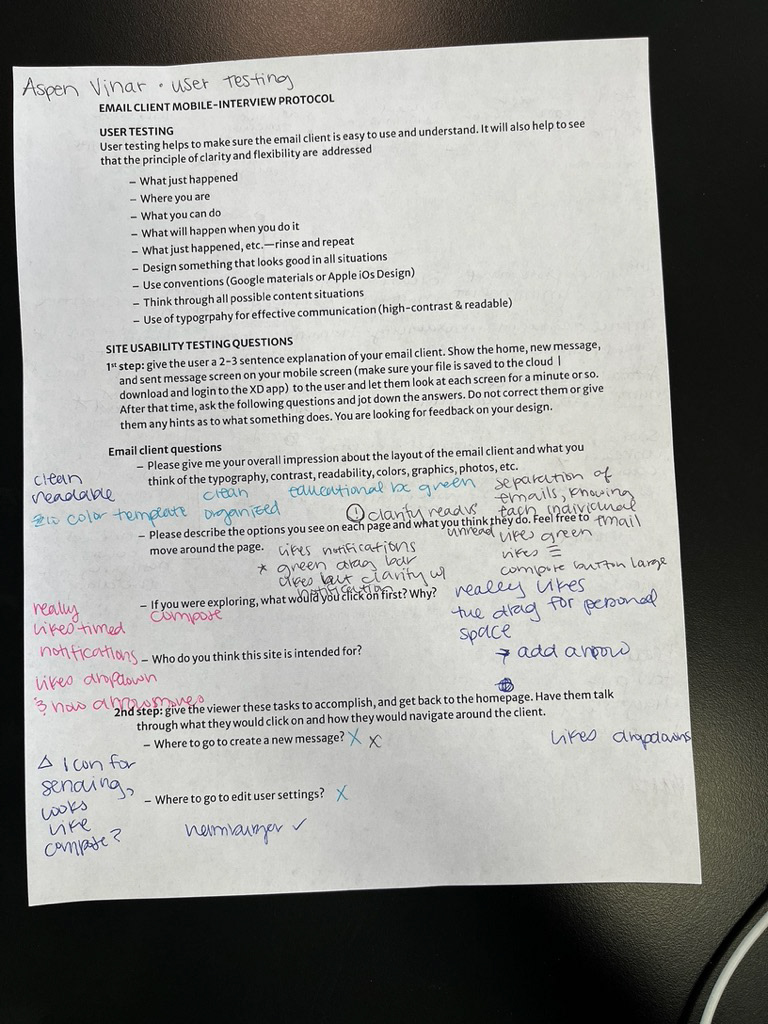 Aspen Vinar • user testing
EMAIL CLIENT MOBILE-INTERVIEW PROTOCOL
USER TESTING
User testing helps to make sure the email client is easy to use and understand. It will also help to see
that the principle of clarity and flexibility are addressed
– What just happened
– Where you are
– What you can do
– What will happen when you do it
– What just happened, etc.—rinse and repeat
– Design something that looks good in all situations
– Use conventions (Google materials or Apple iOs Design)
– Think through all possible content situations
– Use of typogrpahy for effective communication (high-contrast & readable)
SITE USABILITY TESTING QUESTIONS
1st step: give the user a 2-3 sentence explanation of your email client. Show the home, new message,
and sent message screen on your mobile screen (make sure your file is saved to the cloud |
download and login to the XD app) to the user and let them look at each screen for a minute or so.
After that time, ask the following questions and jot down the answers. Do not correct them or give
them any hints as to what something does. You are looking for feedback on your design.
Email client questions
– Please give me your overall impression about the layout of the email client and what you
think of the typography, contrast, readability, colors, graphics, photos, etc.
clean
readable
color template
clean
organized
educational bc green
separation of
emails, knowing
each individual
email
! clarity read vs
unread
– Please describe the options you see on each page and what you think they do. Feel free to
move around the page.
likes notifications
* green drag bar
likes but clarity w/
notification
likes green
likes ≡
compose button large
– If you were exploring, what would you click on first? Why?
compose
really
liked timed
notifications
likes dropdown
& how arrow moves
really likes
the drag for personal
space
→ add arrow
– Who do you think this site is intended for?
2nd step: give the viewer these tasks to accomplish, and get back to the homepage. Have them talk
through what they would click on and how they would navigate around the client.
– Where to go to create a new message? X X
likes dropdowns
Δ Icon for
sending,
looks
like
compose?
– Where to go to edit user settings? X
hamburger ✓